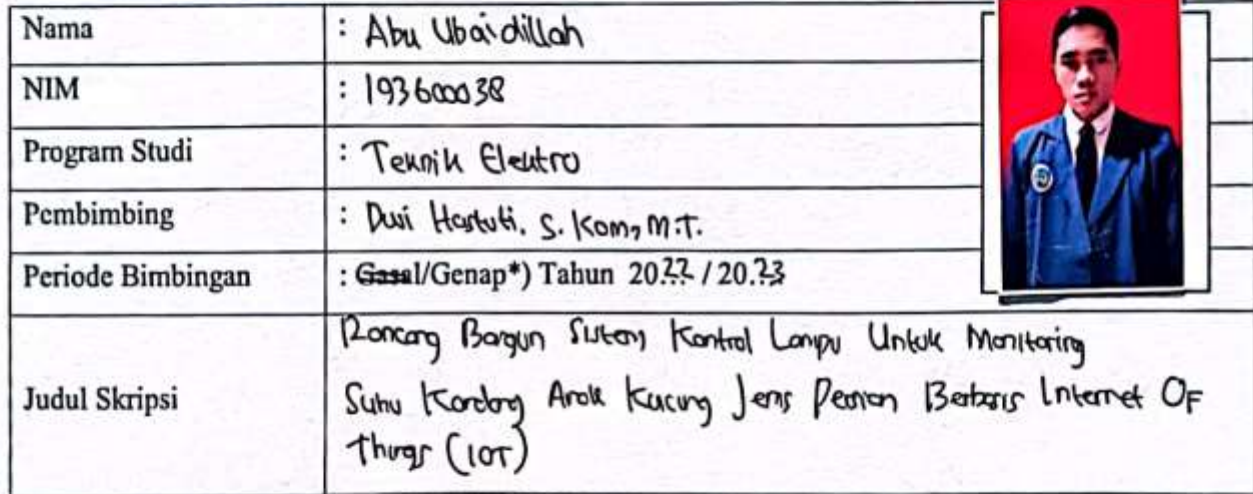 Nama : Abu Ubaidillah
NIM : 193600038
Program Studi : Teknik Elektro
Pembimbing : Dwi Hastuti. S. Kom, M.T.
Periode Bimbingan : Gasal/Genap*) Tahun 2022 / 2023
Rancang Bangun Sistem Kontrol Lampu Untuk Monitoring
Judul Skripsi Suhu Kandang Anak Kucing Jenis Persian Berbasis Internet OF
Things (IOT)